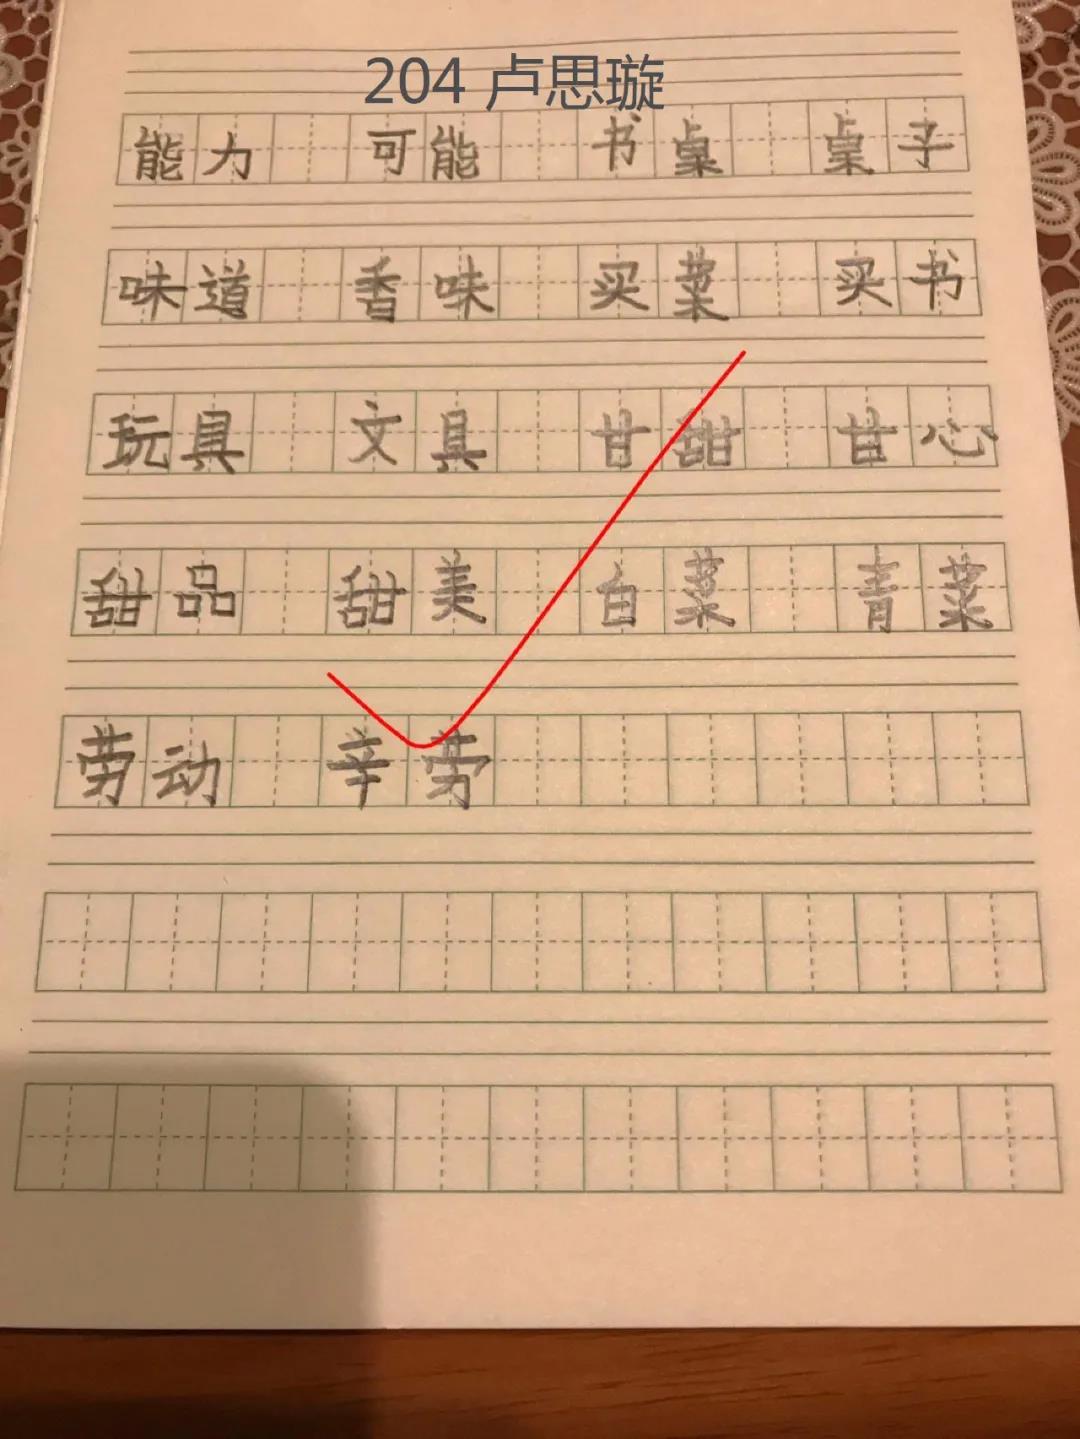 204 卢思璇
能力 可能 书桌 桌子
味道 香味 买菜 买书
玩具 文具 甘甜 甘心
甜品 甜美 白菜 青菜
劳动 辛劳